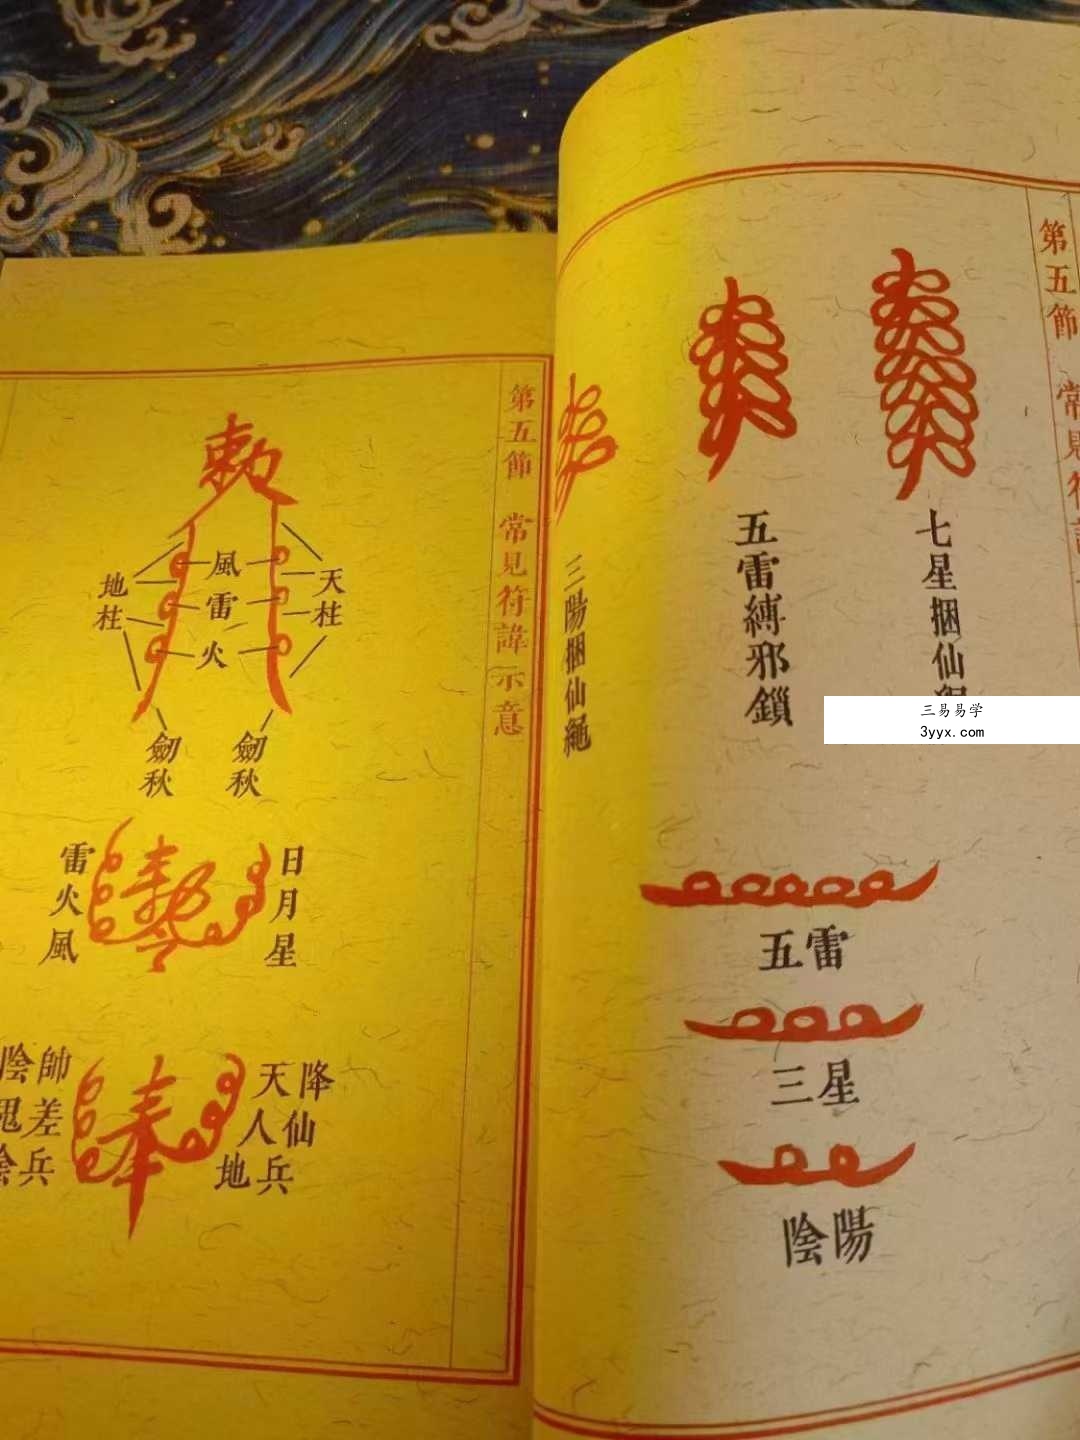 第五節 常見符諱
七星捆仙
五雷縛邪鎖
三陽捆仙繩
三易易学
3yyx.com
五雷
三星
陰陽
第五節 常見符諱示意
敕
天柱
風
雷
火
地柱
劍秋
劍秋
日月星
敕令
雷火風
降仙兵
天人地
奉
帥差兵
陰